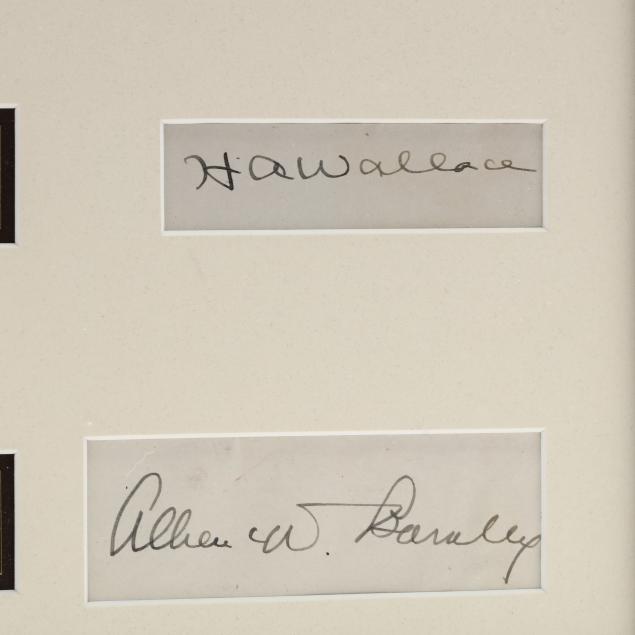 H A Wallace
Alben W. Barkley